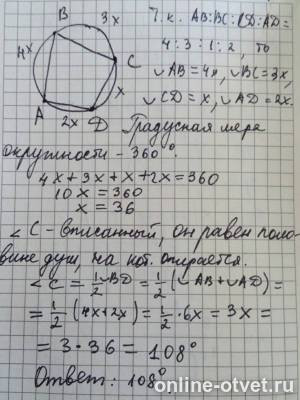 B
3x
Т.к. AB:BC:CD:AD=
4:3:1:2, то
4x
C
◡AB=4x, ◡BC=3x,
x
◡CD=x, ◡AD=2x.
A
2x
D
Градусная мера
окружности - 360°.
4x+3x+x+2x=360
10x=360
x=36
∠C - вписанный, он равен поло-
вине дуги, на кот. опирается.
∠C=1/2◡BD=1/2(◡AB+◡AD)=
=1/2(4x+2x)=1/2·6x=3x=
=3·36=108°
Ответ: 108°.
online-otvet.ru